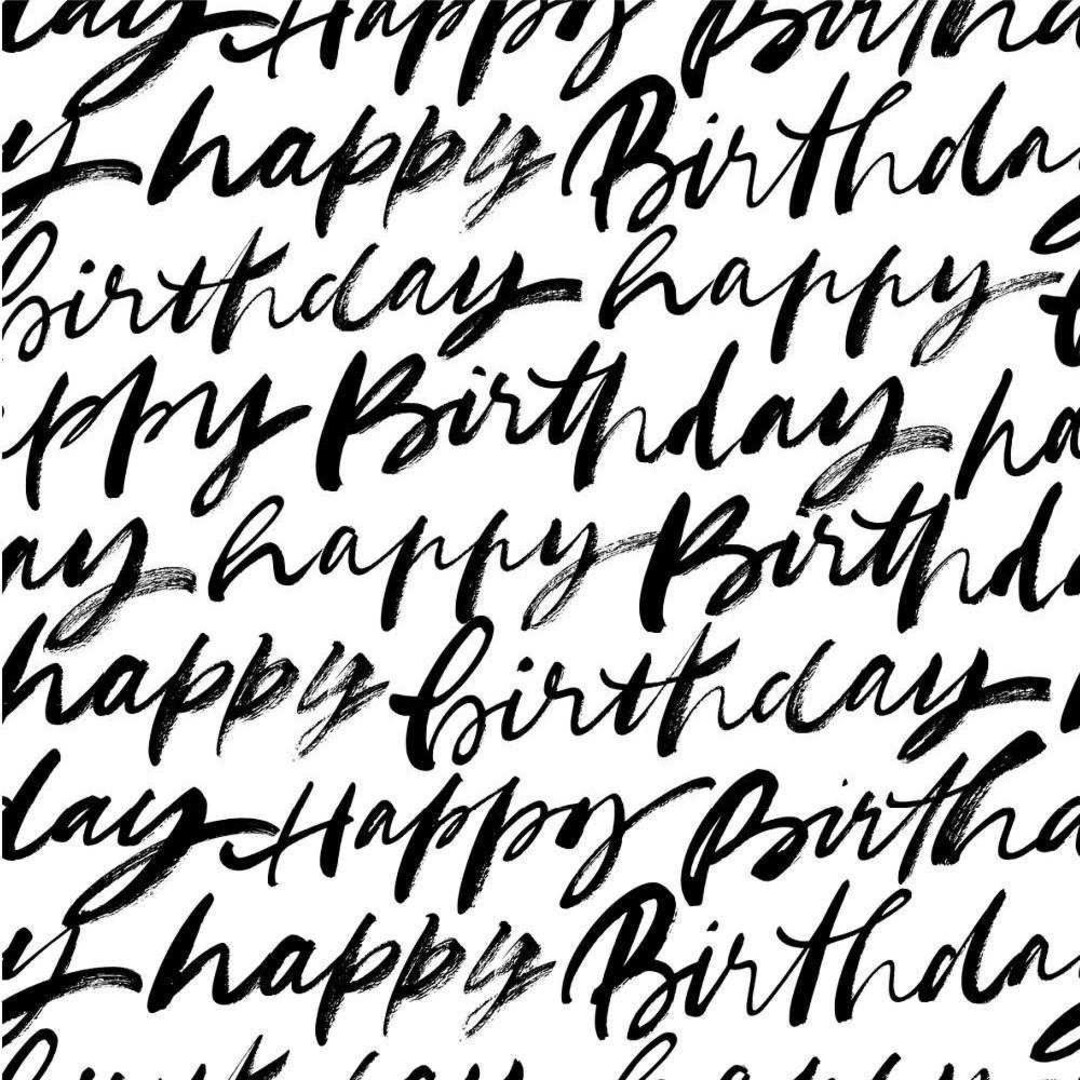 day Happy Birthda
y happy Birthday
birthday happy b
appy Birthday ha
ay happy Birthda
happy birthday h
day Happy Birthda
y happy Birthday
birthday happy